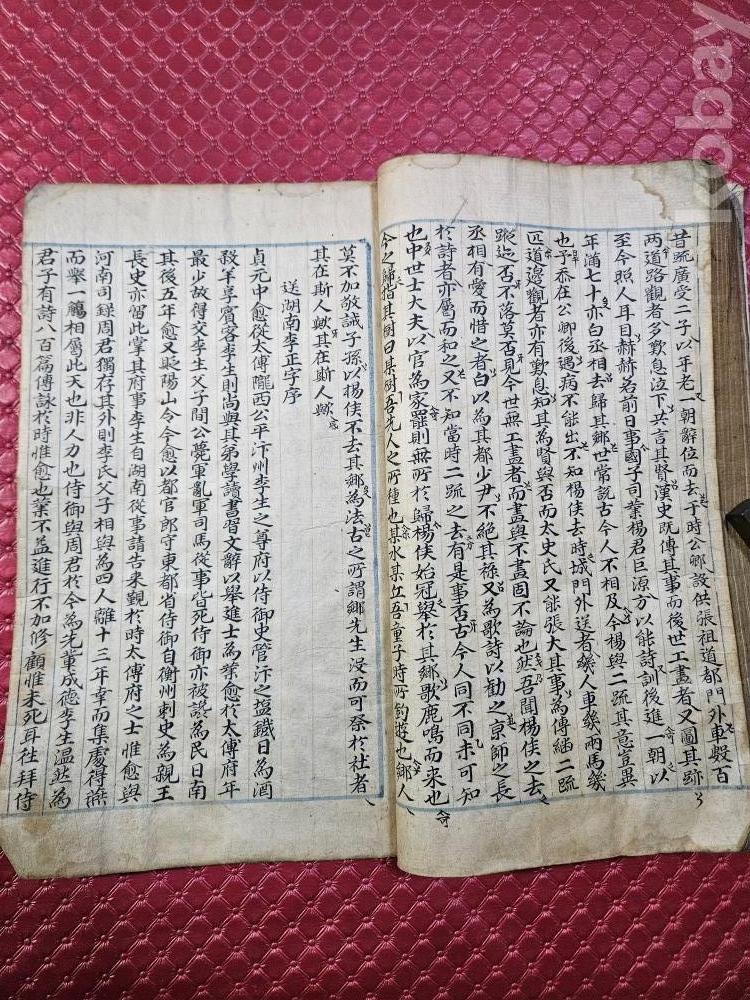 昔疏廣受二子以年老一朝辭位而去于時公卿設供張祖道都門外車數百
兩道路觀者多歎息泣下共言其賢漢史既傳其事而後世工畫者又圖其跡
至今照人耳目赫赫若前日事國子司業楊君巨源方以能詩訓後進一朝以
年滿七十亦白丞相去歸其鄉世常說古今人不相及今楊與二疏其意豈異
也予忝在公卿後遇病不能出不知楊侯去時城門外送者幾人車幾兩馬幾
匹道邊觀者亦有歎息知其為賢與否而太史氏又能張大其事為傳繼二疏
蹤迹否不落莫否見今世無工畫者而畫與不畫固不論也然吾聞楊侯之去
丞相有愛而惜之者白以為其都少尹不絕其祿又為歌詩以勸之京師之長
於詩者亦屬而和之又不知當時二疏之去有是事否古今人同不同未可知
也中世士大夫以官為家罷則無所於歸楊侯始冠舉於其鄉歌鹿鳴而来也
今之歸指其樹曰某樹吾先人之所種也某水某丘吾童子時所釣遊也鄉人
莫不加敬誡子孫以楊侯不去其鄉為法古之所謂鄉先生沒而可祭於社者
其在斯人歟其在斯人歟
送湖南李正字序
貞元中愈從太傅隴西公平汴州李生之尊府以侍御史管汴之塩鐵日為酒
殺羊享賓客李生則尚與其弟學讀書習文辭以舉進士為業愈於太傅府年
最少故得交李生父子間公薨軍亂軍司馬從事皆死侍御亦被讒為民日南
其後五年愈又貶陽山令今愈以都官郎守東都省侍御自衡州刺史為親王
長史亦留此掌其府事李生自湖南從事請告來覲於時太傅府之士惟愈與
河南司錄周君獨存其外則李氏父子相與為四人離十三年幸而集處得燕
而舉一觴相屬此天也非人力也侍御與周君於今為先輩成德李生温然為
君子有詩八百篇傳詠於時惟愈也業不益進行不加修顧惟未死耳往拜侍
kobay